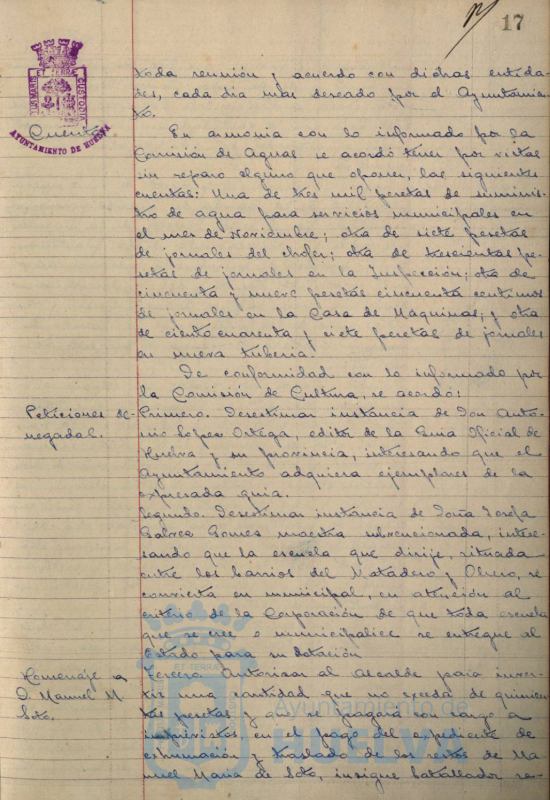 17
PORTUS MARIS ET TERRÆ CUSTODIA
AYUNTAMIENTO DE HUELVA
toda reunión y acuerdo con dichas entida-
des, cada día más deseado por el Ayuntamien-
to.
Cuentas
En armonía con lo informado por la
Comisión de Aguas se acordó tener por vistas
sin reparo alguno que oponer, las siguientes
cuentas: Una de tres mil pesetas de suminis-
tro de agua para servicios municipales en
el mes de Noviembre; otra de siete pesetas
de jornales del chofer; otra de trescientas pe-
setas de jornales en la Inspección; otra de
cincuenta y nueve pesetas cincuenta centimos
de jornales en la Casa de Maquinas; y otra
de ciento cuarenta y siete pesetas de jornales
en nueva tuberia.
De conformidad con lo informado por
la Comisión de Cultura, se acordó:
Peticiones de-
negadas.
Primero. Desestimar instancia de Don Anto-
nio Lopez Ortega, editor de la Guia Oficial de
Huelva y su provincia, interesando que el
Ayuntamiento adquiera ejemplares de la
expresada guia.
Segundo. Desestimar instancia de Doña Josefa
Gomez maestra subvencionada, intere-
sando que la escuela que dirije, situada
entre los barrios del Matadero y Obrero, se
convierta en municipal, en atención al
criterio de la Corporación de que toda escuela
que se cree o municipalice se entregue al
Estado para su dotación
Homenaje a
D. Manuel M.
Soto.
Tercero. Autorizar al Alcalde para inver-
tir una cantidad que no exceda de quinien-
tas pesetas y que se pagará con cargo a
imprevistos en el pago del expediente de
exhumación y traslado de los restos de Ma-
nuel Maria de Soto, insigne batallador re-
ET TERRÆ
Ayuntamiento de
HUELVA